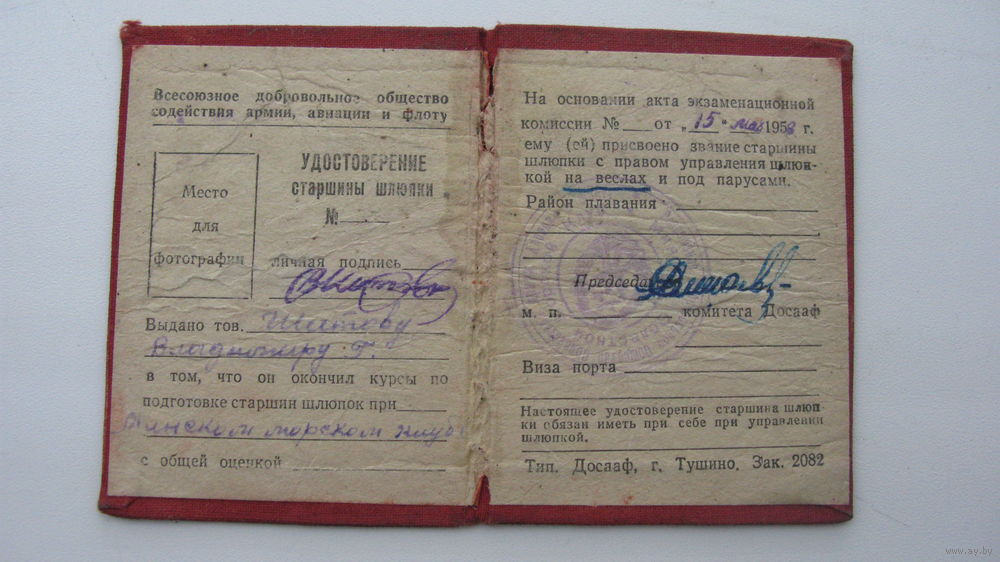 Всесоюзное добровольное общество
содействия армии, авиации и флоту
Место
для
фотографии
УДОСТОВЕРЕНИЕ
старшины шлюпки
№
личная подпись
Выдано тов. Шитову
Владимиру Г.
в том, что он окончил курсы по
подготовке старшин шлюпок при
морском клубе
с общей оценкой
На основании акта экзаменационной
комиссии № от „15" мая 1958 г.
ему (ей) присвоено звание старшины
шлюпки с правом управления шлюп-
кой на веслах и под парусами.
Район плавания
Председатель
м. п. комитета Досааф
Виза порта
Настоящее удостоверение старшина шлюп-
ки обязан иметь при себе при управлении
шлюпкой.
Тип. Досааф, г. Тушино, Зак. 2082
www.ay.by